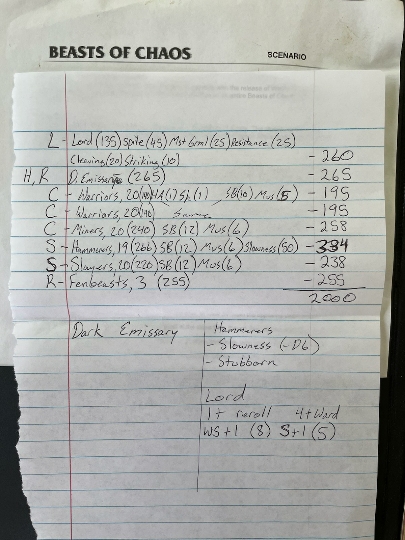 BEASTS OF CHAOS
SCENARIO
L - Lord (135) Spite (45) Mst Grml (25) Resistance (25)
Cleaving (20) Striking (10) - 260
H, R D. Emissary (265) - 265
C - Warriors, 20 SB (10) Mus (5) - 195
C - Warriors, 20 Same - 195
C - Miners, 20 (240) SB (12) Mus (6) - 258
S - Hammerers, 19 (266) SB (12) Mus (6) Slowness (50) - 334
S - Slayers, 20 (220) SB (12) Mus (6) - 238
R - Fenbeasts, 3 (255) - 255
2000
Dark Emissary
Hammerers
- Slowness (-D6)
- Stubborn
Lord
1+ reroll 4+ Ward
WS+1 (8) S+1 (5)